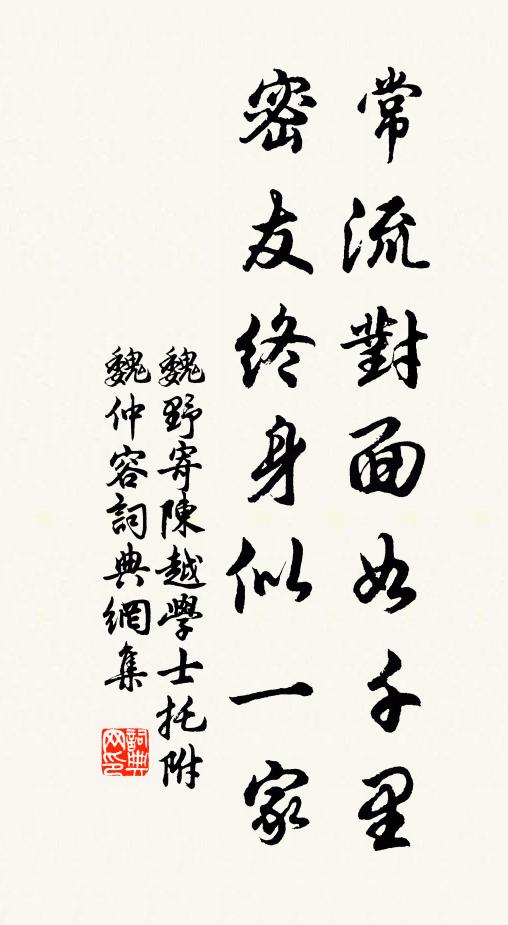 常流對面如千里
密友終身似一家
魏野寄陳越學士托附
魏仲容詞典網集
詞典网印